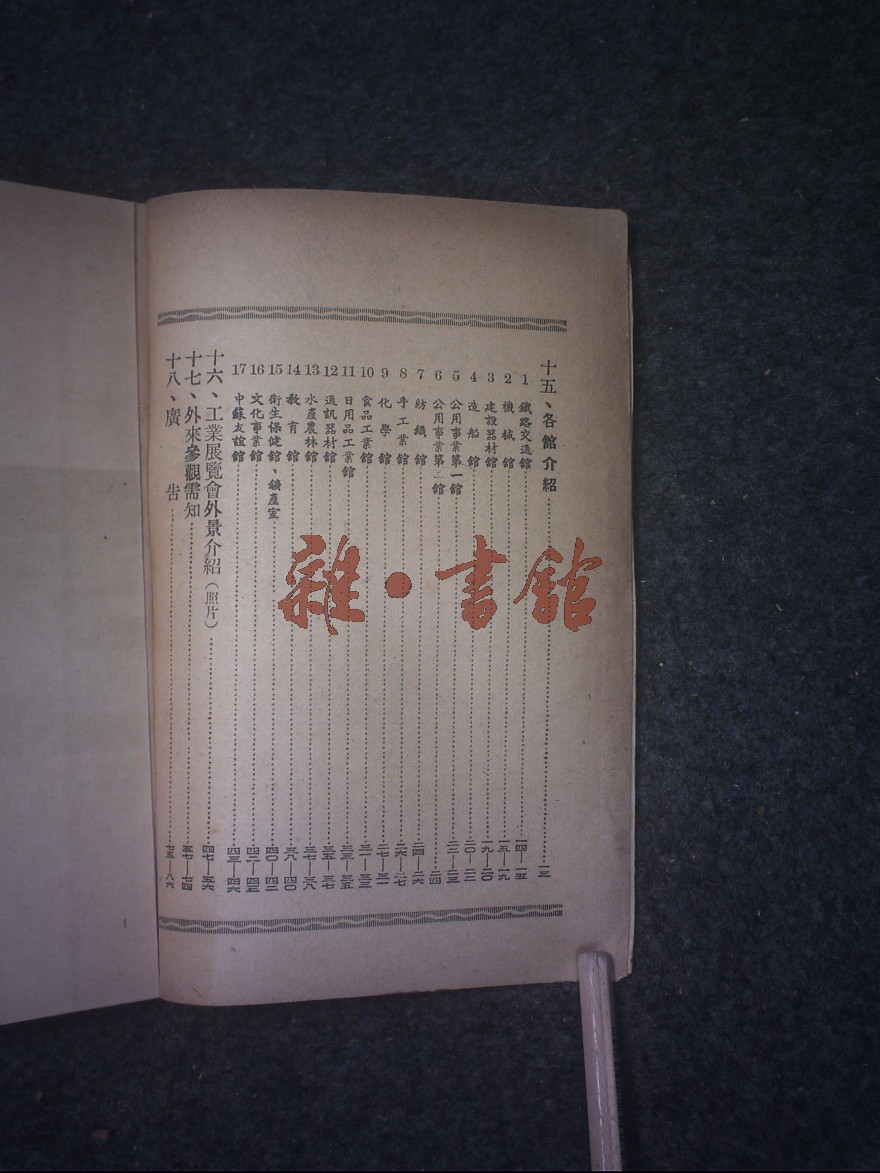 十五、各館介紹……一三
1 鐵路交通館……一四—一五
2 機械館……一五—一九
3 建設器材館……一九—二〇
4 造船館……二〇—二二
5 公用事業第一館……二二—二三
6 公用事業第二館……二四
7 紡織館……二四—二六
8 手工業館……二六—二七
9 化學館……二七—三一
10 食品工業館……三一—三三
11 日用品工業館……三三—三五
12 通訊器材館……三五—三七
13 水產農林館……三七—三八
14 教育館……三八—四〇
15 衛生保健館、鑛產室……四〇—四二
16 文化事業館……四二—四五
17 中蘇友誼館……四三—四六
十六、工業展覽會外景介紹(照片)……四七—五六
十七、外來參觀需知……五七—七四
十八、廣告……七五—八六
雜·書館